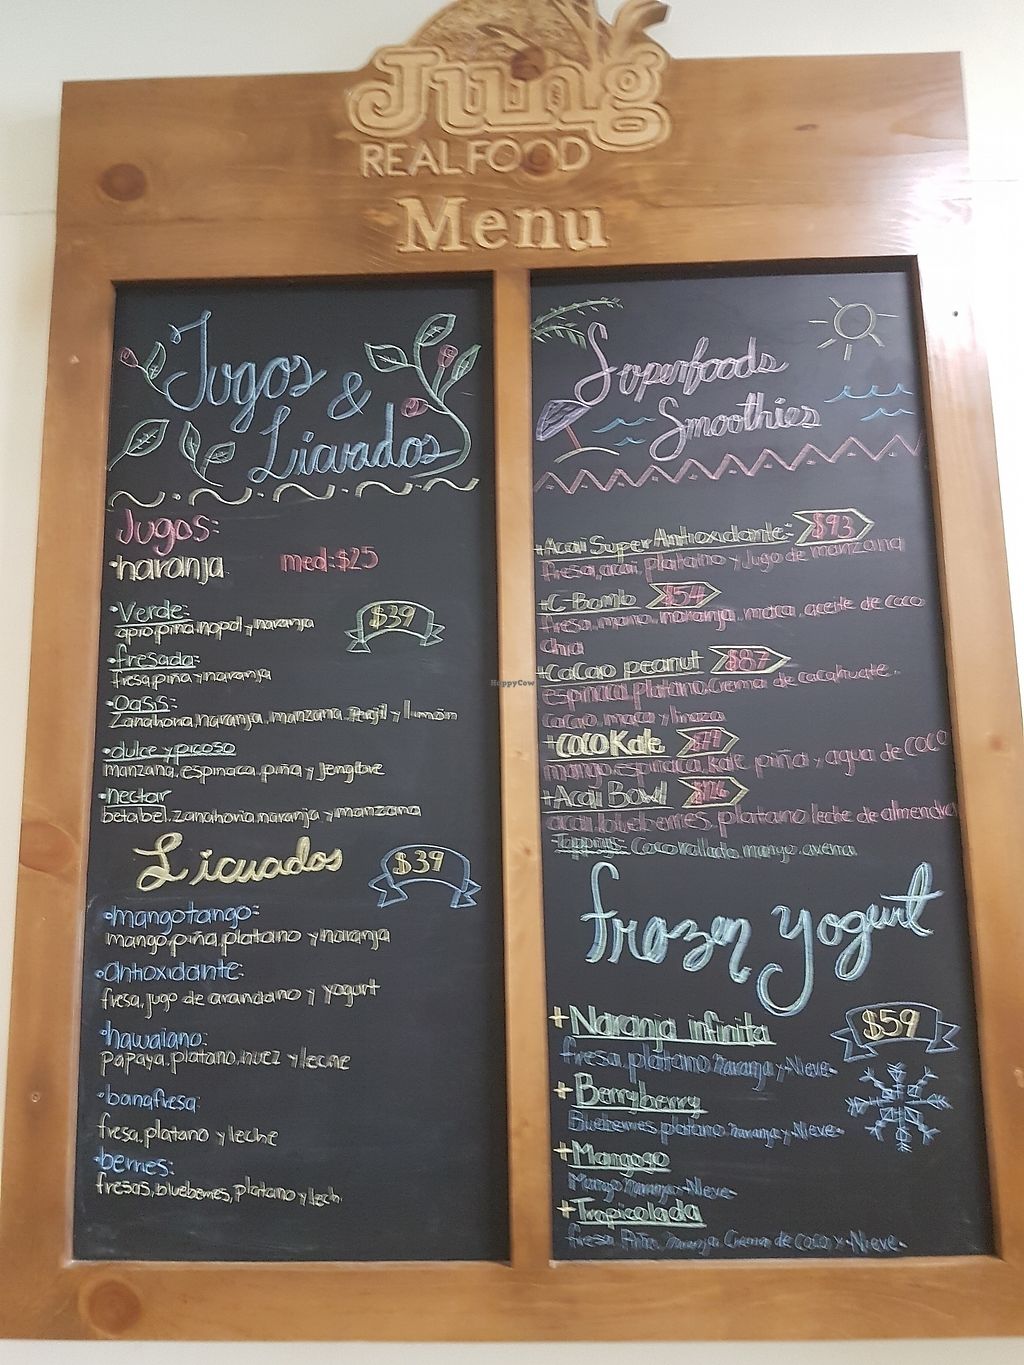 Jung
REAL FOOD
Menu
Jugos
&
Licuados
Jugos:
•naranja med:$25
•Verde: $39
apio, piña, nopal y naranja
•fresada:
fresa, piña y naranja
•Oasis:
Zanahoria, naranja, manzana, Perejil y limón
•dulce y picoso
manzana, espinaca, piña y Jengibre
•nectar
betabel, zanahoria, naranja y manzana
Licuados $39
•mangotango:
mango, piña, platano y naranja
•antioxidante:
fresa, jugo de arandano y yogurt
•hawaiano:
papaya, platano, nuez y leche
•banafresa:
fresa, platano y leche
•berries:
fresas, blueberries, platano y lech
Superfoods
Smoothies
+Acaii Super Antioxidante: $93
fresa, acai, platano y Jugo de manzana
+C-Bomb $54
fresa, mano, naranja, maca, aceite de coco
chia
+CaCao peanut $87
espinaca, platano, Crema de cacahuate,
cacao, maca y linaza
+COCOKale $79
mango, espinaca, Kale, piña y agua de COCO
+Acaii Bowl
acai, blueberries, platano leche de almendra
Toppings: Coco rallado, mango, avena
HappyCow
frozen yogurt
+Naranja infinita $59
fresa, platano, naranja y -Nieve-
+Berryberry
Blueberries, platano, naranja y -Nieve-
+Mangogo
Mango naranja -Nieve-
+Tropicolada
fresa, Piña, naranja, Crema de coco y -Nieve-